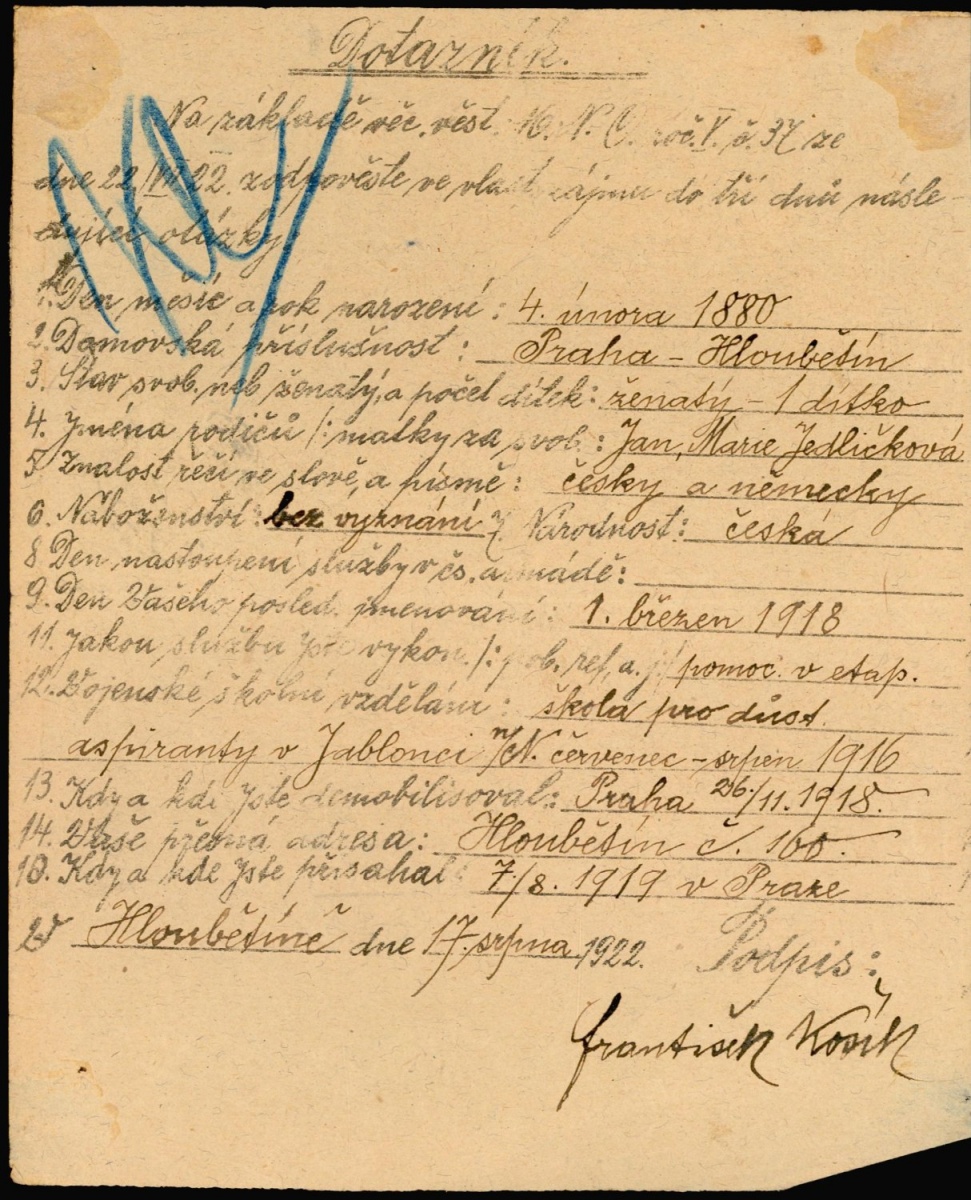 Dotazník.
Na základě věc. věst. M. N. O. roč. V. č. 37 ze
dne 22./VII 22. zodpovězte ve vlast. zájmu do tří dnů násle-
dující otázky
1. Den měsíc a rok narození: 4. února 1880
2. Domovská příslušnost: Praha - Hloubětín
3. Stav svob. neb ženatý, a počet dítek: ženatý - 1 dítko
4. Jména rodičů /: matky za svob.: Jan, Marie Jedličková
5. Znalost řečí ve slově, a písmě: česky a německy
6. Náboženství: bez vyznání 7. Národnost: česká
8 Den nastoupení služby v čs. armádě:
9. Den Vašeho posled. jmenování: 1. březen 1918
11. Jakou službu jste vykon. /: pob. ref, a. j./ pomoc. v etap.
12. Vojenské školní vzdělání: škola pro důst.
aspiranty v Jablonci n/N. červenec - srpen 1916
13. Kdy a kde jste demobilisoval: Praha 26./11. 1918.
14. Vaše přesná adresa: Hloubětín č. 160.
10. Kdy a kde jste přísahal: 7./8. 1919 v Praze
V Hloubětíně dne 17. srpna 1922. Podpis:
František Košík